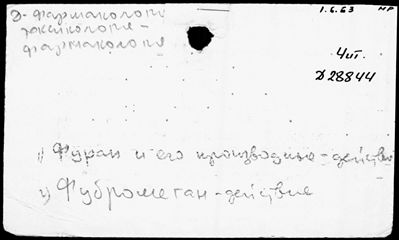 Э-фармакологи
токсикология-
фармакология
1.6.63 НР
Чит.
D28844
1) Фуран и его производные-действи
2) Фубромеган-действие